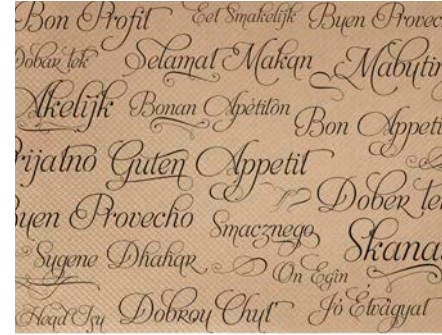 Bon Profit Eet Smakelijk Buen Provech
Dobar tek Selamat Makan Mabutin
Akelijk Bonan Apétiton Bon Appeti
rijatno Guten Appetit
Dober tek
uyen Provecho Smacznego Skanau
Sygene Dhahar On Egin
Dobroy Chyt' Jó Étvágyat